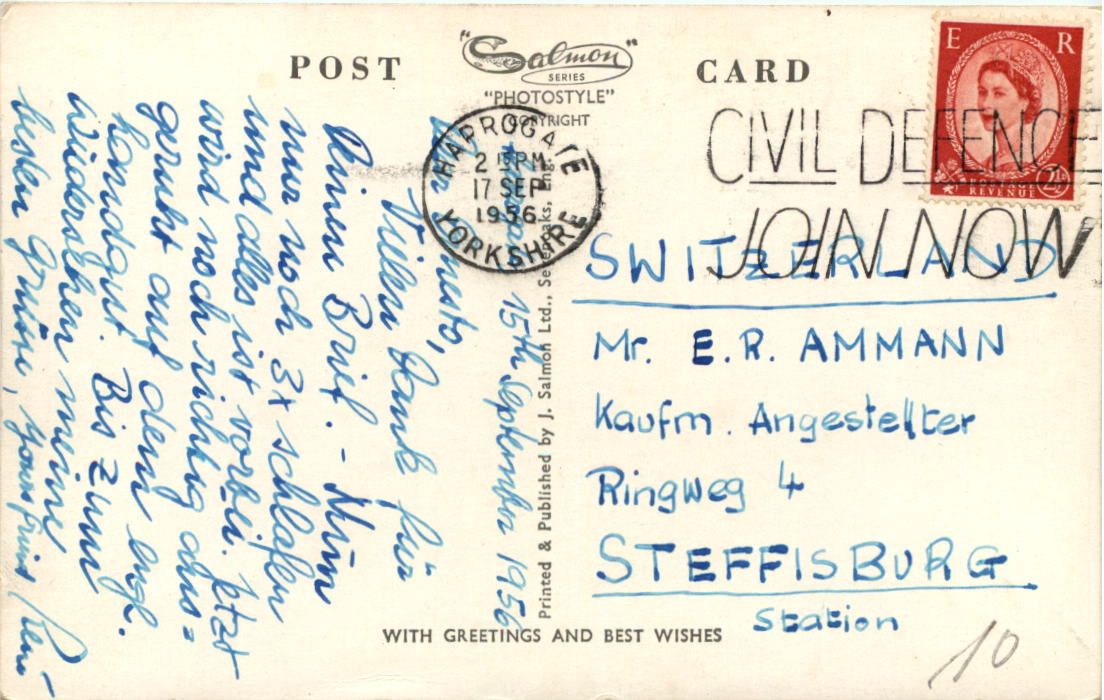 POST CARD
"Salmon"
SERIES
"PHOTOSTYLE"
COPYRIGHT
HARROGATE
2 15 PM
17 SEP
1956
YORKSHIRE
CIVIL DEFENCE
JOIN NOW
E R
POSTAGE
REVENUE 2½
15th September 1956
Vielen Dank für
Deinen Brief. - Nun
nur noch 3x schlafen
und alles ist vorbei. Jetzt
wird noch richtig aus=
geruht auf dem engl.
Bis zum
Wiedersehen meine
besten Grüsse, your friend
SWITZERLAND
Mr. E.R. AMMANN
Kaufm. Angestellter
Ringweg 4
STEFFISBURG
Station
10
Printed & Published by J. Salmon Ltd., Sevenoaks, Eng.
WITH GREETINGS AND BEST WISHES